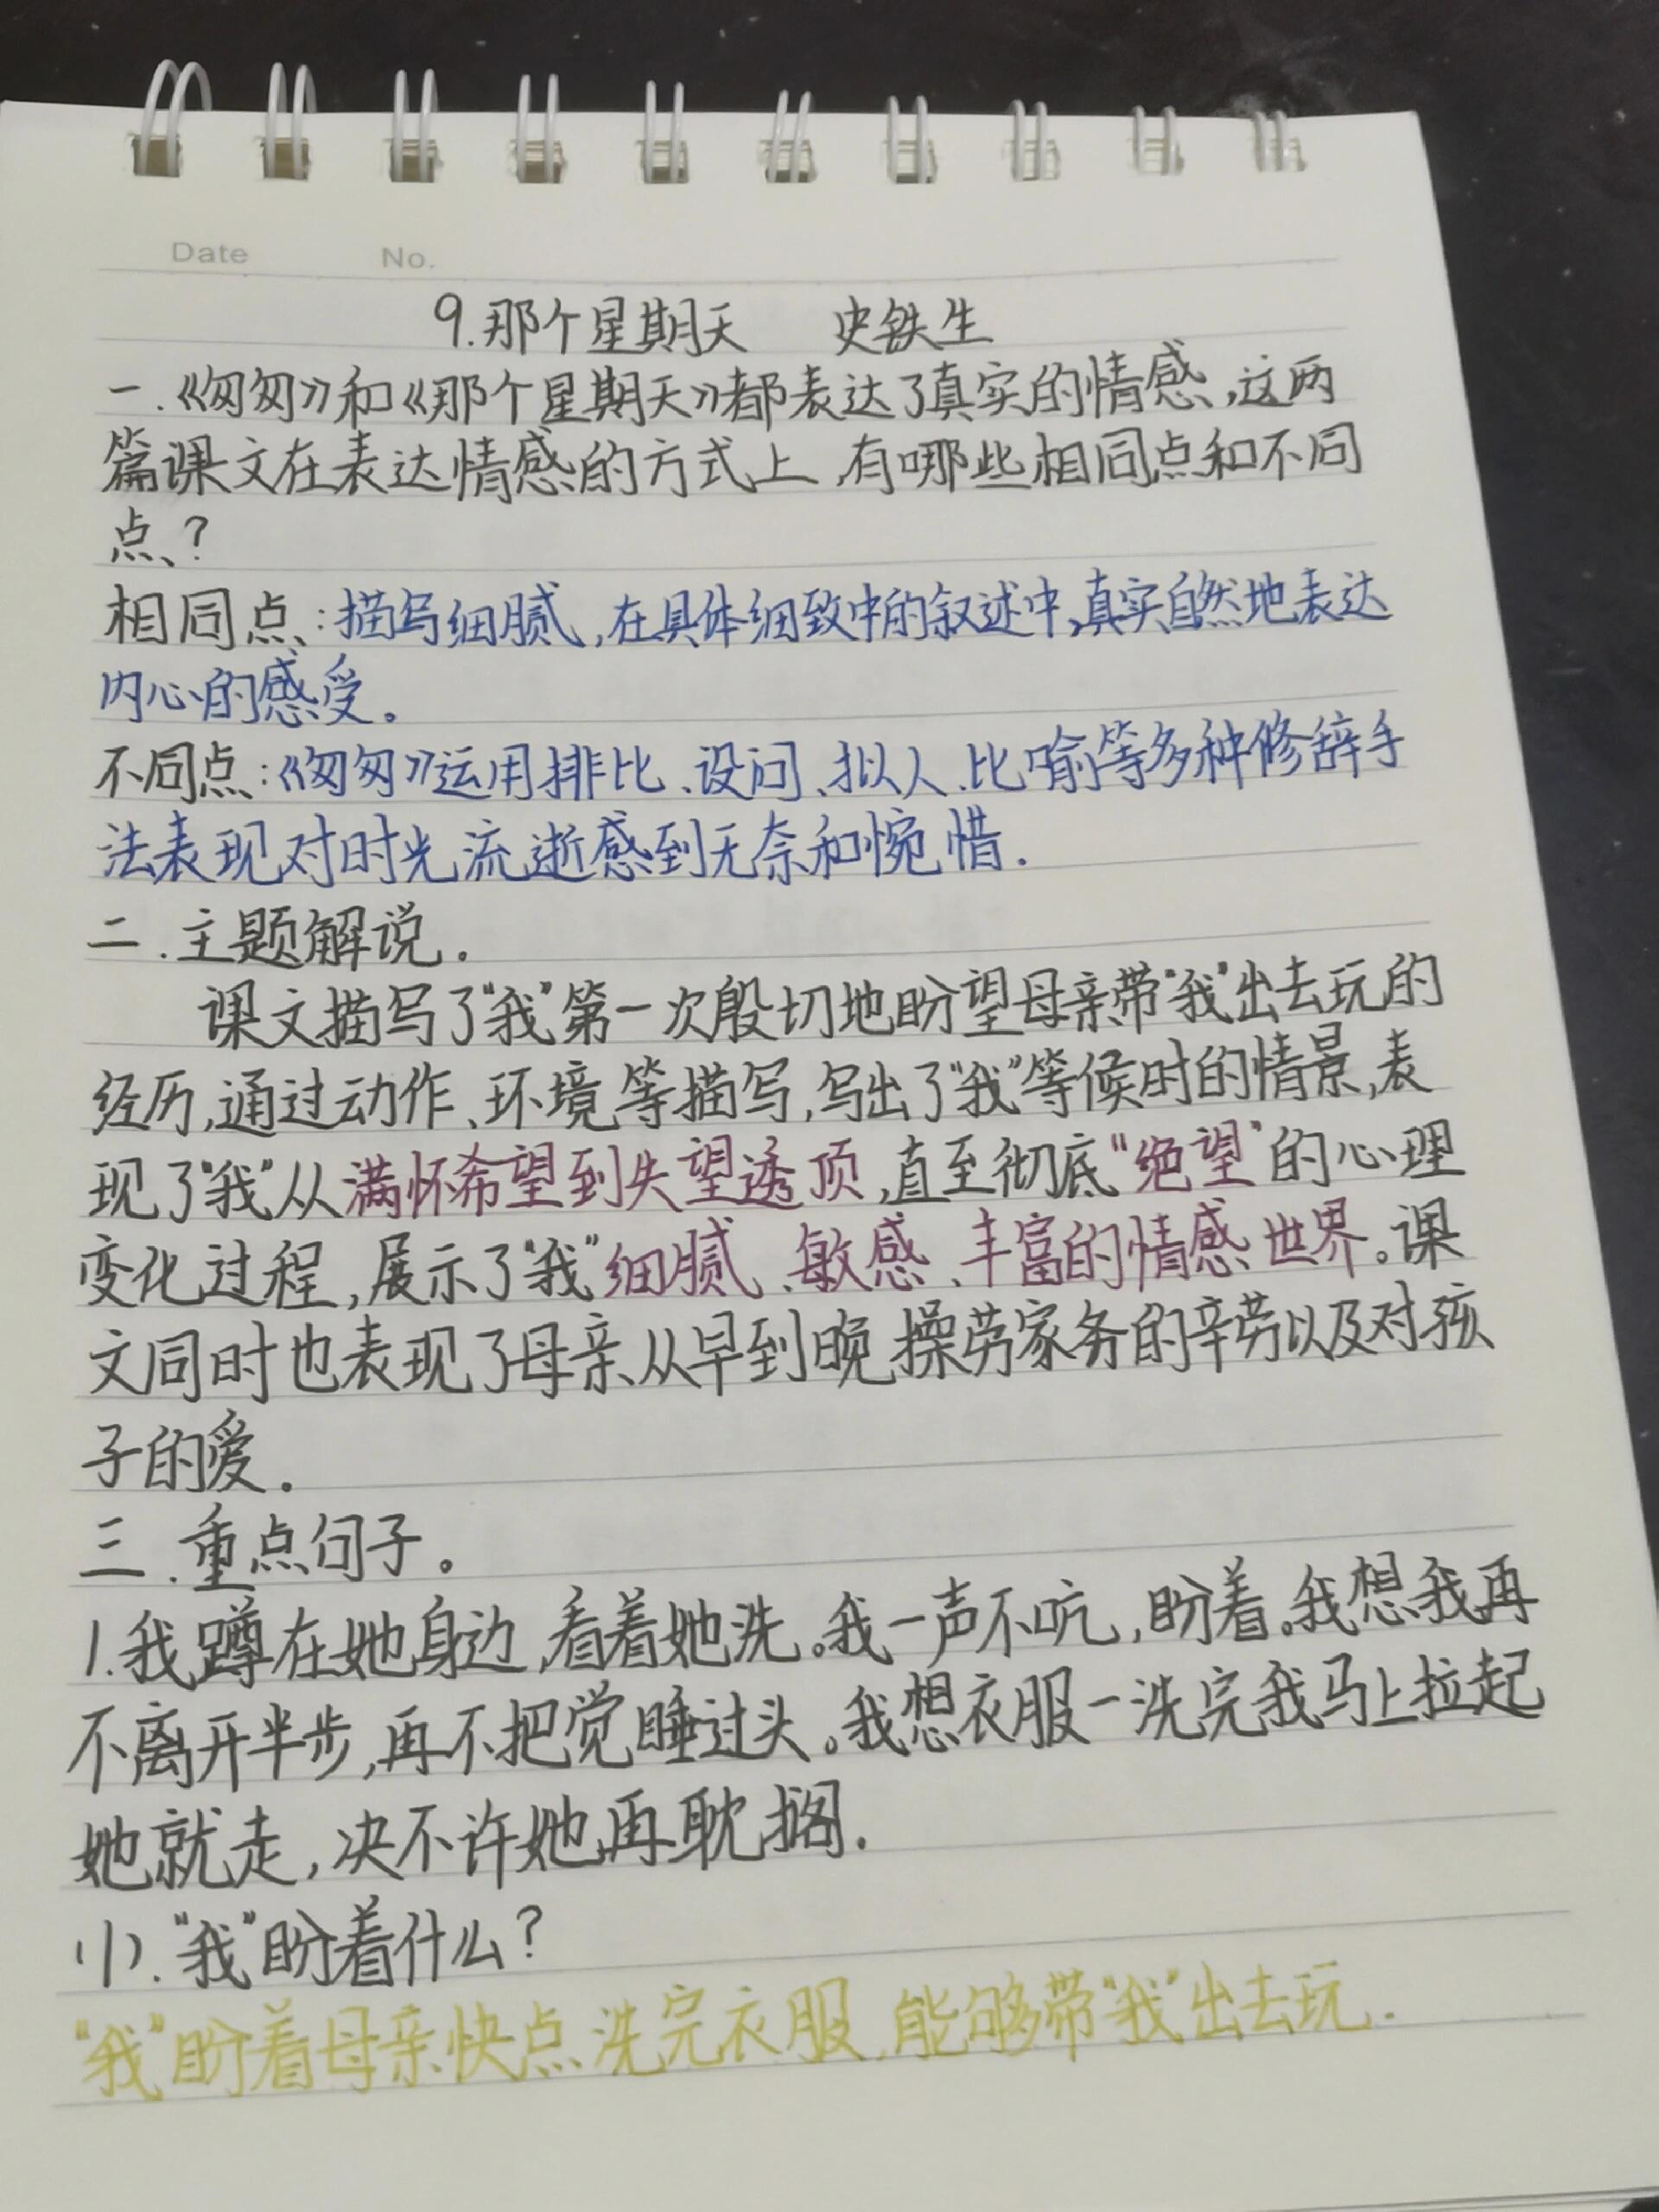 Date No.
9.那个星期天 史铁生
一.《匆匆》和《那个星期天》都表达了真实的情感,这两
篇课文在表达情感的方式上,有哪些相同点和不同
点?
相同点:描写细腻,在具体细致中的叙述中,真实自然地表达
内心的感受。
不同点:《匆匆》运用排比、设问、拟人、比喻等多种修辞手
法表现对时光流逝感到无奈和惋惜.
二.主题解说.
课文描写了“我”第一次殷切地盼望母亲带“我”出去玩的
经历,通过动作、环境等描写,写出了“我”等候时的情景,表
现了“我”从满怀希望到失望透顶,直至彻底“绝望”的心理
变化过程,展示了“我”细腻、敏感、丰富的情感世界。课
文同时也表现了母亲从早到晚操劳家务的辛劳以及对孩
子的爱.
三.重点句子。
1.我蹲在她身边,看着她洗。我一声不吭,盼着。我想我再
不离开半步,再不把觉睡过头。我想衣服一洗完我马上拉起
她就走,决不许她再耽搁.
(1).“我”盼着什么?
“我”盼着母亲快点洗完衣服,能够带“我”出去玩.